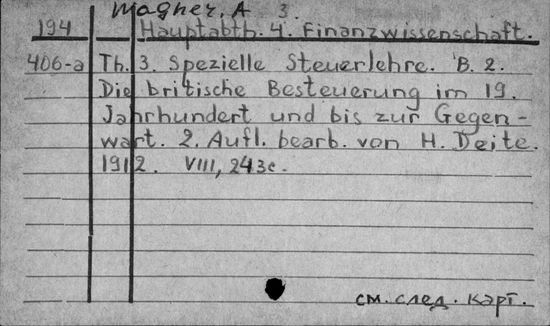 Wagner, A 3.
194 Hauptabth. 4. Finanzwissenschaft.
406-a Th. 3. Spezielle Steuerlehre. B. 2.
Die britische Besteuerung im 19.
Jahrhundert und bis zur Gegen-
wart. 2. Aufl. bearb. von H. Deite.
1912. VIII, 243c.
см. след. карт.